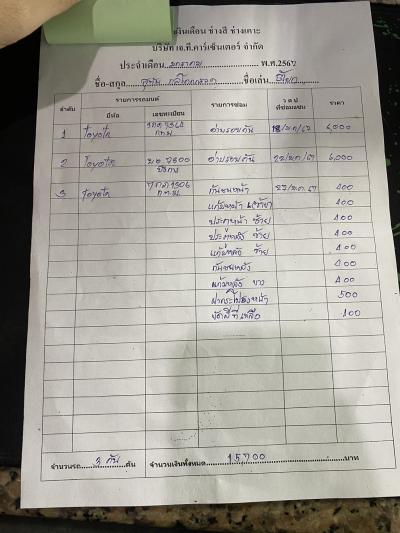 เงินเดือน ช่างสี ช่างเคาะ
บริษัท เอ.ที.คาร์เซ็นเตอร์ จำกัด
ประจำเดือน มกราคม พ.ศ.2567
ชื่อ-สกุล ชื่อเล่น
ลำดับ รายการรถยนต์ รายการซ่อม ว ด ป ที่ซ่อมเสร็จ ราคา
ยี่ห้อ เลขทะเบียน
1 Toyota กทม. อ่ารอบคัน 6,000
2 Toyota อ่ารอบคัน 22/ม.ค./67 6,000
3 Toyota กทม. กันชนหน้า 400
แก้มหน้า 400
ประตูหน้า ซ้าย 400
ประตูหลัง ซ้าย 400
แก้มหลัง ซ้าย 400
กันชนหลัง 400
แก้มหลัง ขวา 400
ฝากระโปรงหน้า 500
400
จำนวนรถ 3 คัน คัน จำนวนเงินทั้งหมด 15,700 บาท